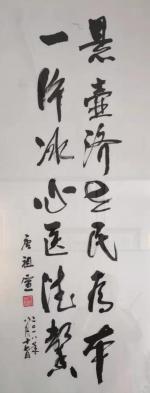 悬壺济世民为本
一片冰心医德馨
唐祖宣
二〇一八年